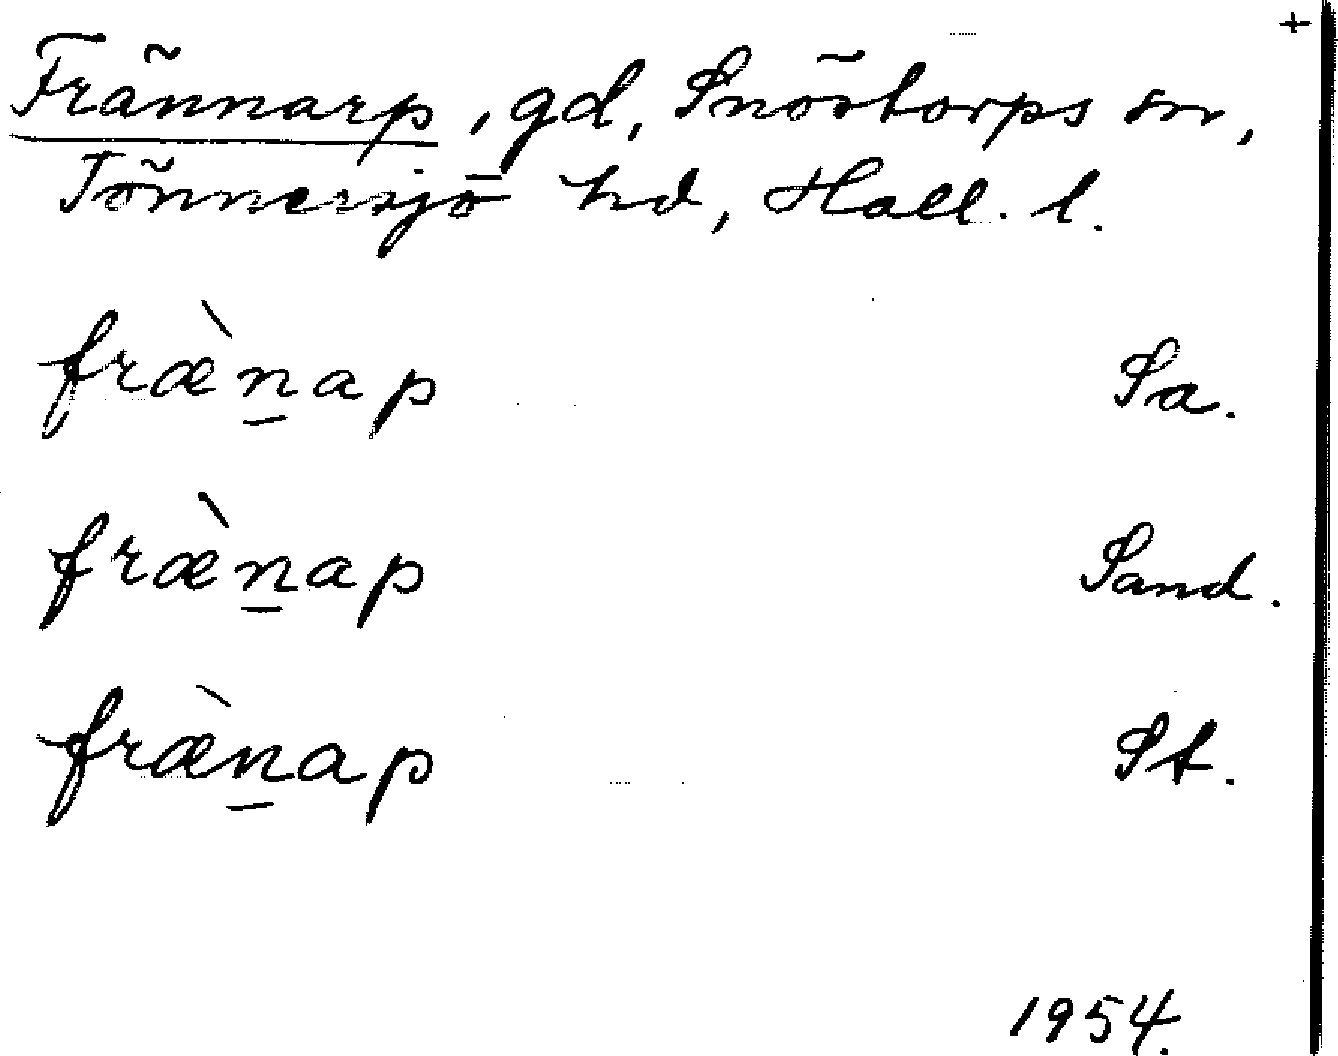 +
Frännarp, gd, Snöstorps sn,
Tönnersjö hd, Hall. l.
fræ̀n̲ap Sa.
fræ̀n̲ap Sand.
fræ̀n̲ap St.
1954.